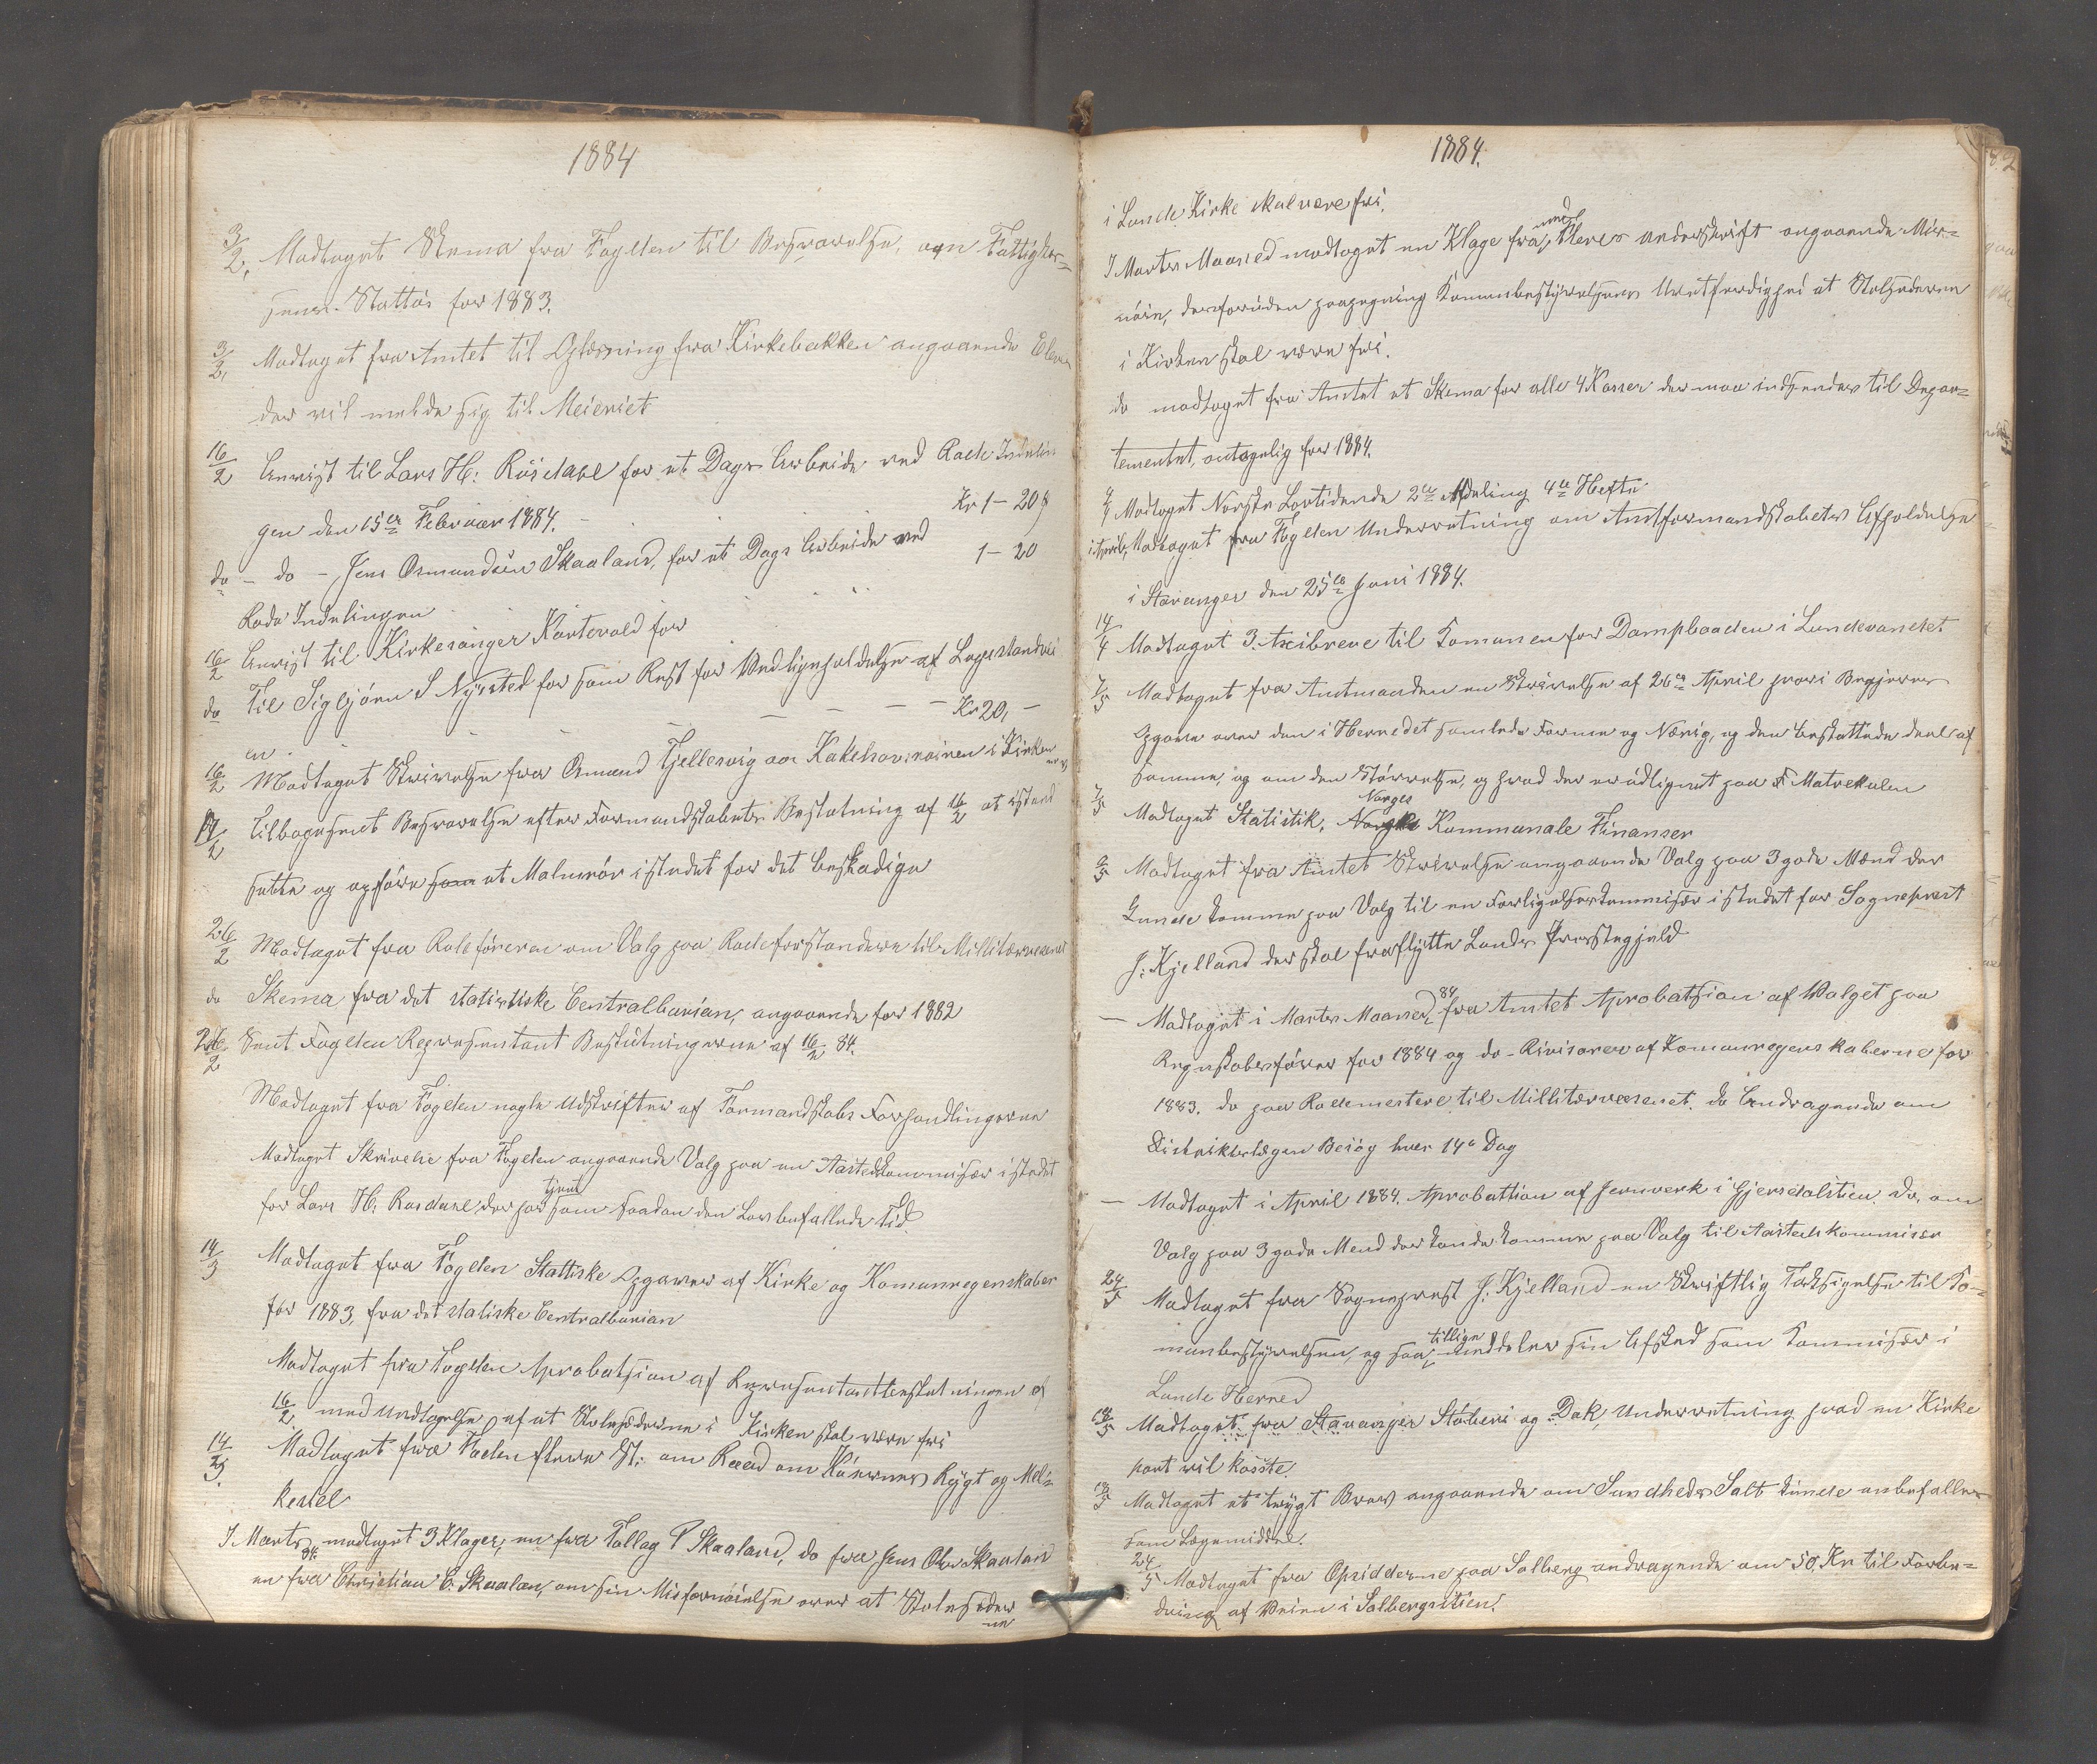 1884
3/2. Modtaget Skema fra Fogden til Besvarelse, ogn Fattigkas-
sens Stattus for 1883.
3/2. Modtaget fra Amtet til Oplæsning fra Kirkebakken angaaende Elever
der vil melde sig til Meieriet
16/2 Anvist til Lars H: Rusdahl for et Dags Arbeide ved Rode Indelin
gen den 15de Februar 1884. Kr 1-20
do - do - Jens Osmundsen Skaaland, for et Dags Arbeide ved
Rode Indelingen 1-20
16/2 Anvist til Kirkesanger Kartevold for
do Til Sigbjørn S Nysted for som Rest for Vedligeholdelse af
en Kr 20, -
16/2 Modtaget Skrivelse fra Omund Fjellesvig om Kakkelovnsroiren i Kirken
17/2 Tilbagesent Besvarelse efter Formandskabets Beslutning af 16/2 at istand
sette og opføre som et Malmrør istedet for det beskadige
26/2 Modtaget fra Roleføreren om Valg paa Rodeforstandere til Millitærvesenet
do Skema fra det statistiske Centralburian, angaaende for 1882
26/2 Sent Fogden Representant Beslutningerne af 16/2 84.
Modtaget fra Fogden nogle Udskrifter af Formandskabs Forhandlingerne
Modtaget Skrivelse fra Fogden angaaende Valg paa en Aastedskommisær istedet
for Lars H. Rusdahl der har tjent som saadan den Lovbefallede Tid
14/3 Modtaget fra Fogden Stattiske Opgaver af Kirke og Komunregenskaber
for 1883, fra det statiske Centralburian
Modtaget fra Fogden Aprobatsion af Representantbeslutningen af
16/2 med Undtagelse af at Stolesæderne i Kirken skal være fri
14/3 Modtaget fra Foden flere St: om Raad om Kuernes Røgt og Mel-
kestel
I Marts 84. modtaget 3 Klager, en fra Tollag P Skaaland, do fra Jens Olsen Skaaland
en fra Christian E. Skaalan, om sin Misfornøielse over at Stolesæder
ne
1884.
i Lunde Kirke skal være fri.
I Marts Maaned modtaget en Klage fra, med flere Underskrift angaaende
, desforuden paapegning Komunbestyrelsens Uretferdighed at Stolsederne
i Kirken skal være fri.
do modtaget fra Amtet et Skema for alle 4 Kasser der maa indsendes til Depar-
tementet, antagelig for 1884.
Modtaget Norske Lovtidende 2den Afdeling 4de Hefte
i April, Modtaget fra Fogden Underretning om Amtformandskabets Afholdelse
i Stavanger den 25de Juni 1884.
14/4 Modtaget 3. Axibreve til Komunen for Dampbaaden i Lundevandet
7/5 Modtaget fra Amtmanden en Skrivelse af 26de April hvori Begjeres
Opgave over den i Herredet samlede Formue og Nærig, og den beskattede deel af
samme, og om den Størrelse, og hvad der er udlignet paa Matrekulen
7/5 Modtaget Statistik, Norges Kommunale Finanser
9/5 Modtaget fra Amtet Skrivelse angaaende Valg paa 3 gode Mænd der
kunde komme paa Valg til en Forligelseskommisær istedet for Sogneprest
J: Kjelland der skal fraflytte Lunde Prestegjeld
— Modtaget i Marts Maaned 84, fra Amtet Aprobatsion af Valget paa
Regnskabsfører for 1884 og do - Rivisorer af Komunregenskaberne for
1883. do paa Rodemestere til Millitærvæsenet. do Andragende om
Distriktslægen Besøg hver 14de Dag
— Modtaget i April 1884. Aprobattion af Jernverk i Gjersdalstien. do, om
Valg paa 3 gode Mend der kunde komme paa Valg til Aasteds kommisær
24/5 Modtaget fra Sogneprest J: Kjelland en Skriftlig Taksigelse til Ko-
munbestyrelsen, og som tillige meddeler sin Afsked som Kommisær i
Lunde Herred
Modtaget fra Stavanger Støberi og Dok, Underretning hvad en Kirke
port vil kosste.
Modtaget et trygt Brev angaaende om Sundheds Salt kunde anbefalles
som Lægemiddel.
24/5 Modtaget fra Opsidderne paa Solberg andragende om 50 Kr til Forbe-
dring af Veien i Solbergstien.